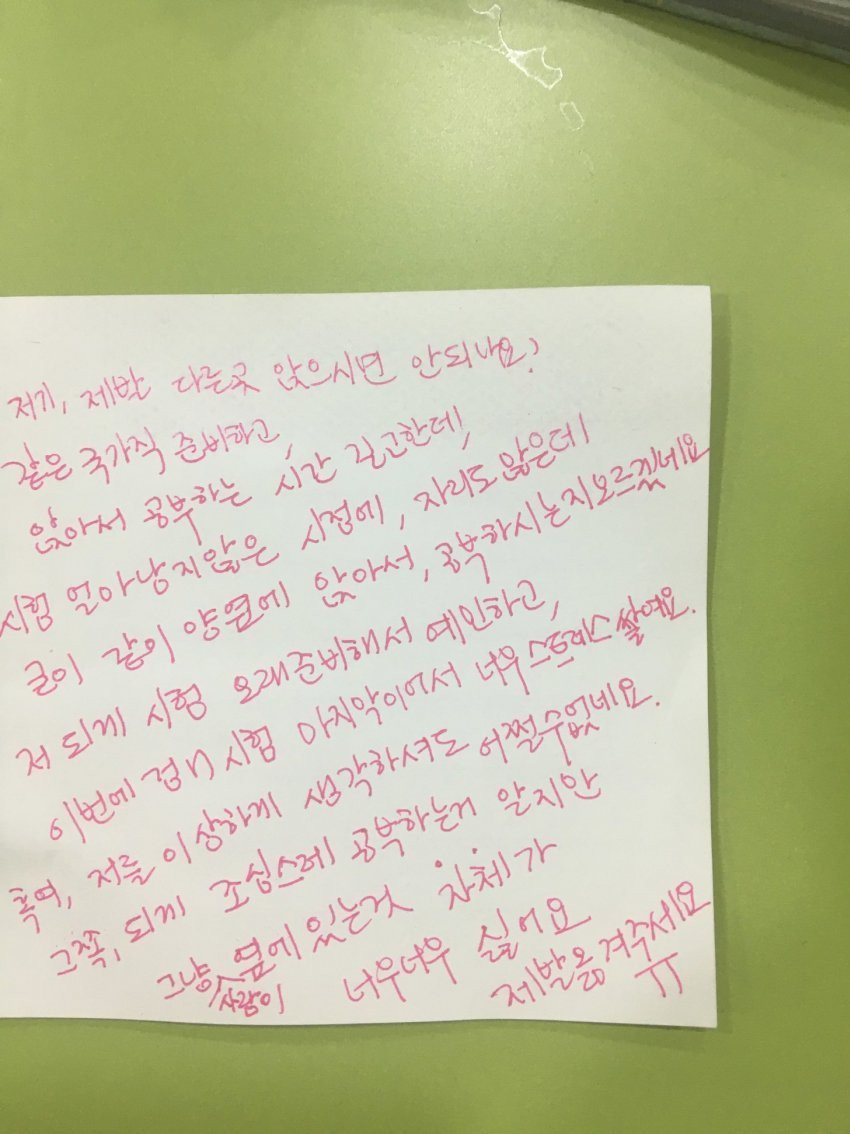 저기, 제발 다른곳 앉으시면 안되나요?
같은 국가직 준비하고,
앉아서 공부하는 시간 길고한데,
시험 얼마남지않은 시점에, 자리도 많은데
굳이 같이 양옆에 앉아서, 공부하시는지모르겠네요
저 되게 시험 오래준비해서 예민하고,
이번에 경기 시험 마지막이어서 너무 스트레스 쌓여요.
혹여, 저를 이상하게 생각하셔도 어쩔수없네요.
그쪽, 되게 조심스레 공부하는거 알지만
그냥 사람이 옆에 있는것 자체가
너무너무 싫어요
제발옮겨주세요
ㅠ